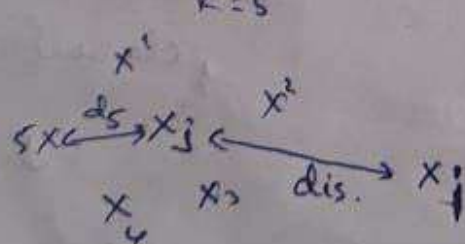 k = 5
x¹
x²
5x d5 xj
dis. xj
x₄ x₃